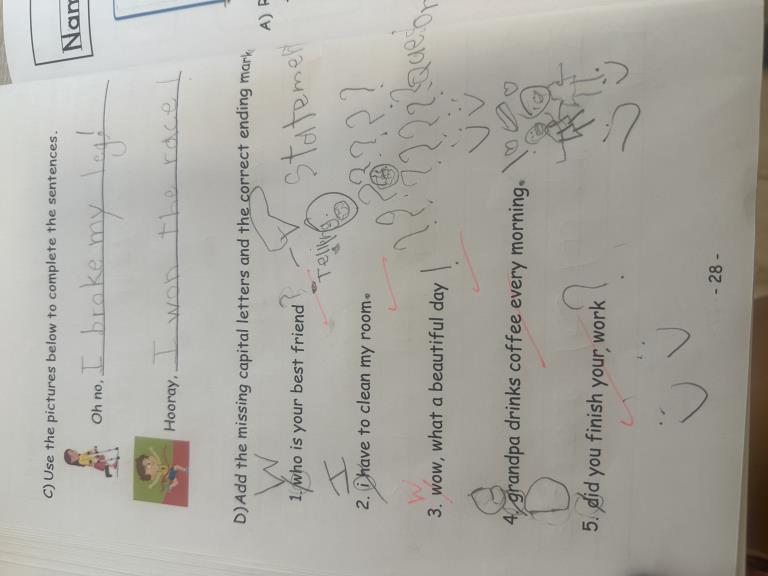 Nam
A) F
C) Use the pictures below to complete the sentences.
Oh no, I broke my leg!
Hooray, I won the race!
D) Add the missing capital letters and the correct ending mark
W
1. who is your best friend ?
Telling
Statement
I
2. i have to clean my room.
? ? ? ? ?
? ? ? ? ? ? Question
W
3. wow, what a beautiful day !
G
4. grandpa drinks coffee every morning.
D
5. did you finish your work ?
- 28 -